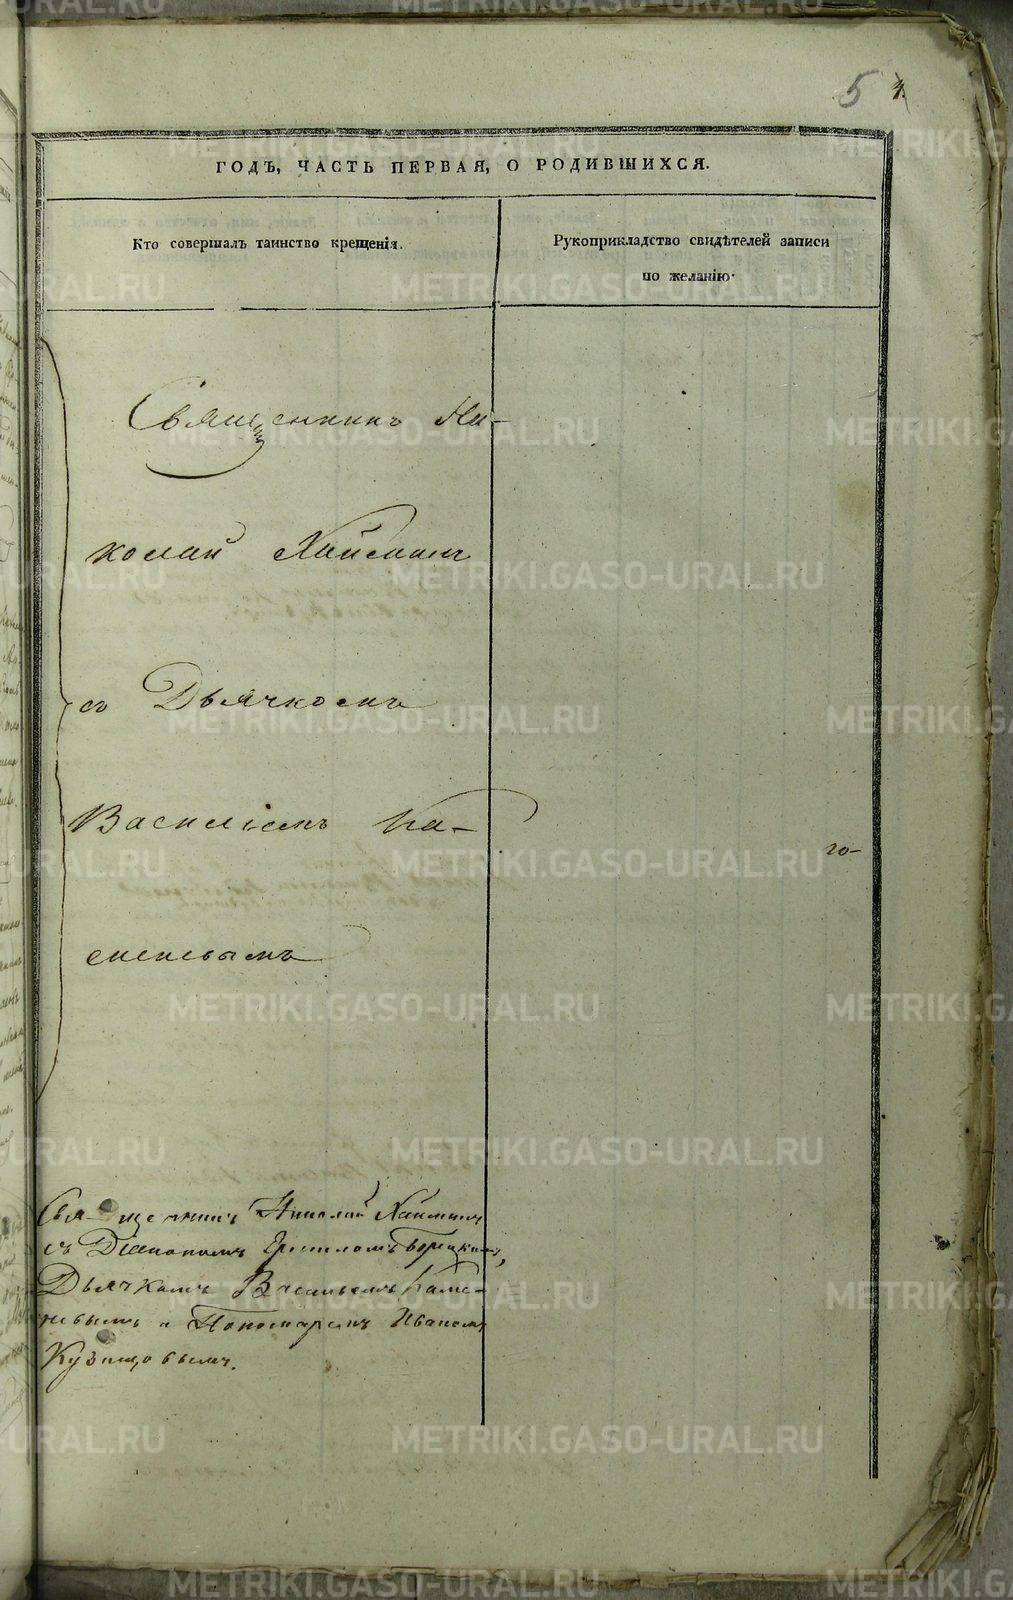 5 4.
ГОДЪ, ЧАСТЬ ПЕРВАЯ, О РОДИВШИХСЯ.
Кто совершалъ таинство крещенія.
Рукоприкладство свидѣтелей записи
по желанію.
Священникъ Ни-
колай Хайминъ
съ Дьячкомъ
Василіемъ Ка-
меневымъ
го-
Священникъ Николай Хайминъ
съ Діакономъ
Дьячкомъ Васильемъ Каме-
невымъ и Пономаремъ Иваномъ
Кузнецовымъ.
METRIKI.GASO-URAL.RU